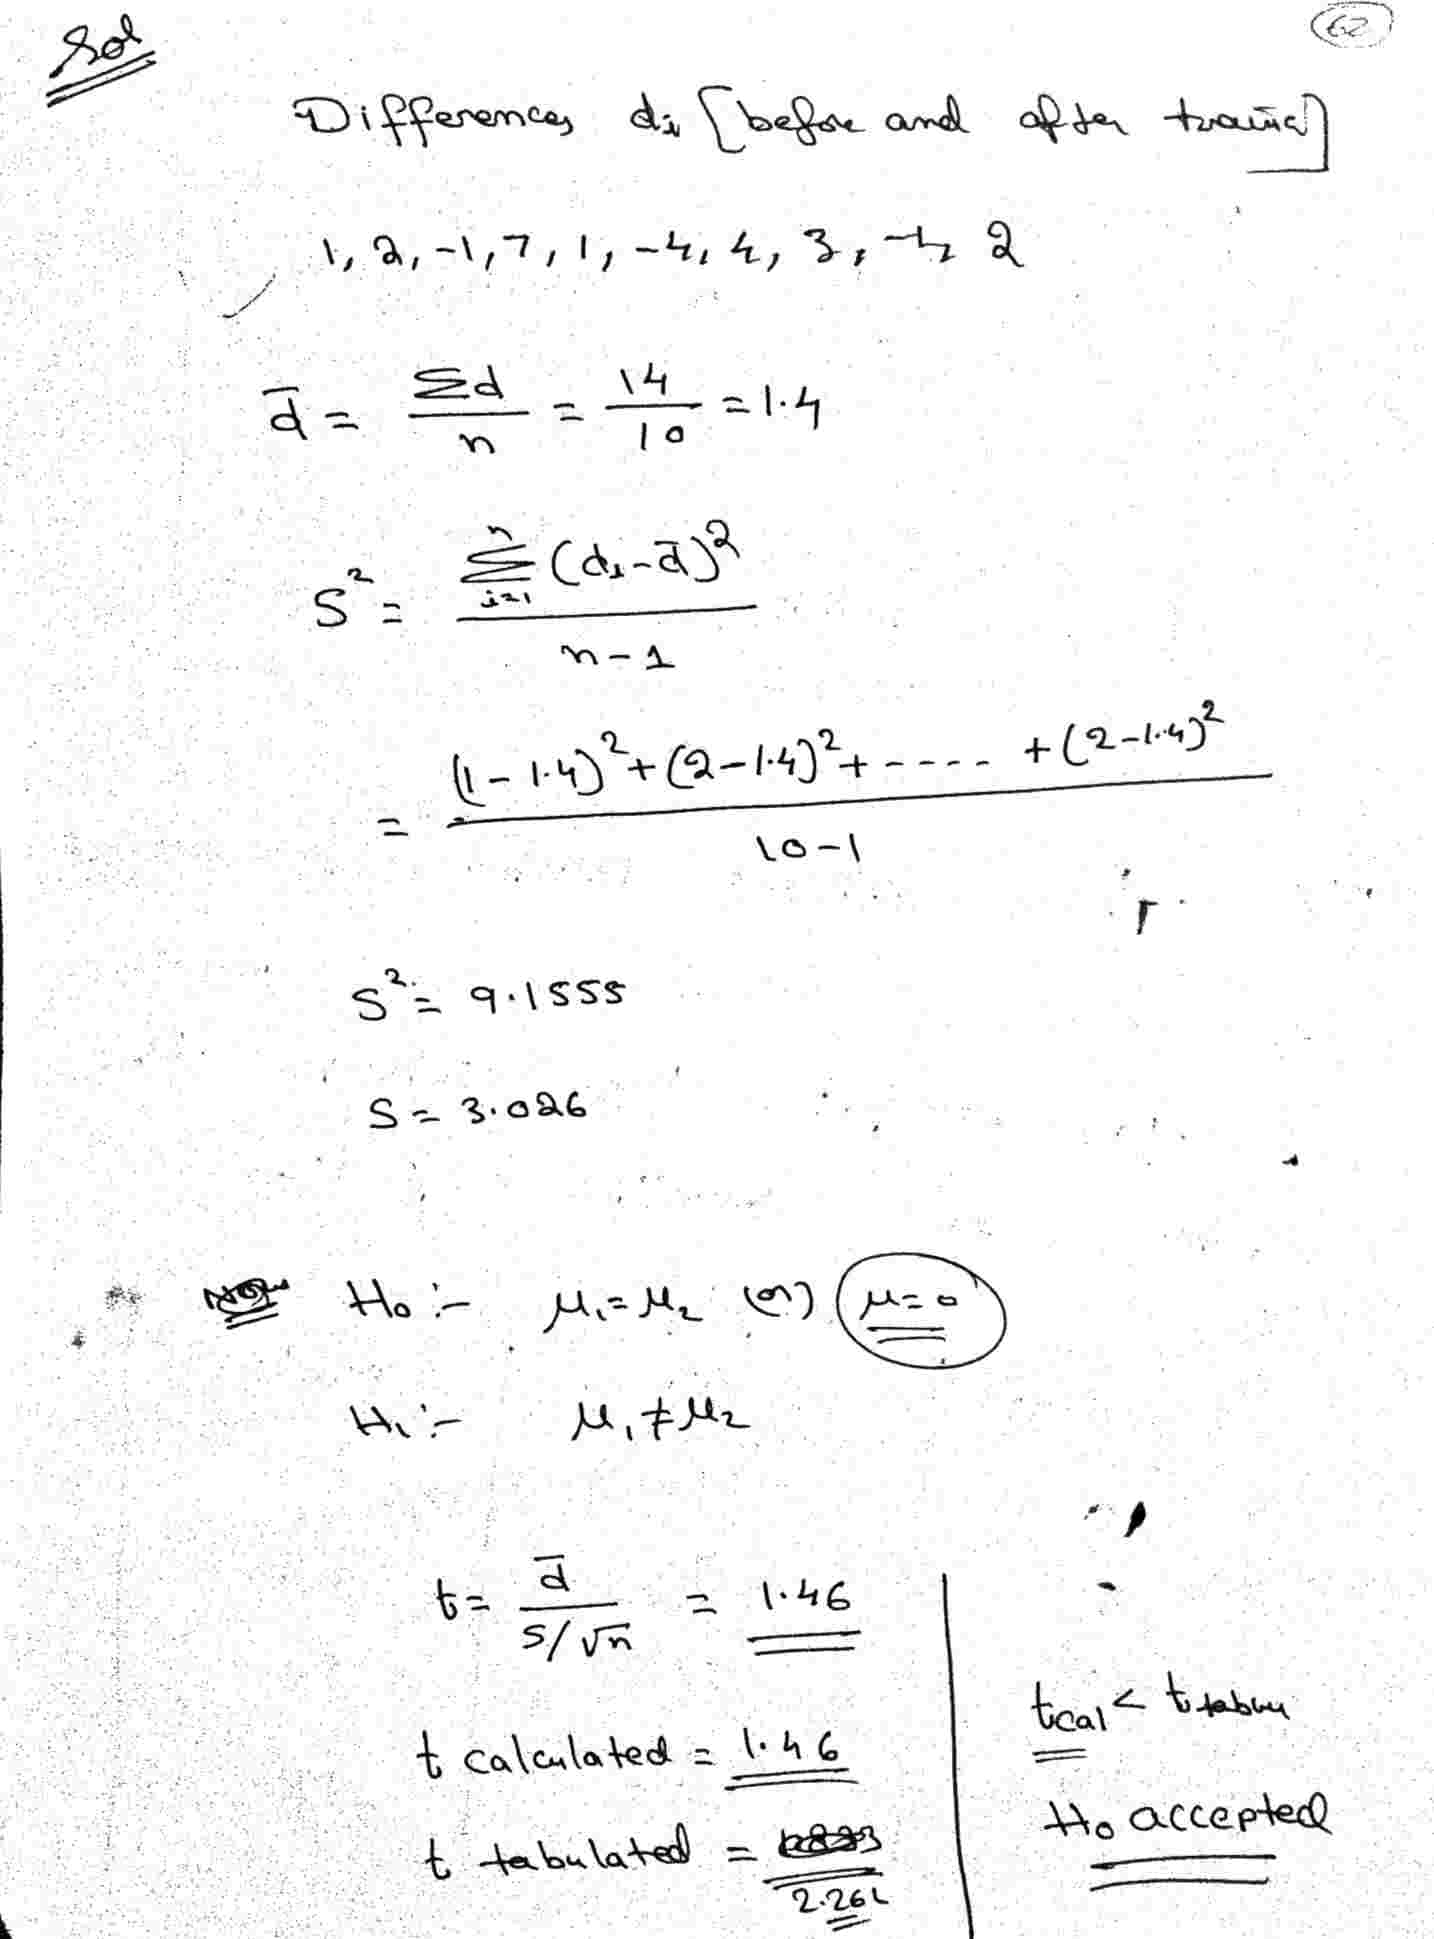 Sol
62
Differences di [before and after traing]
1, 2, -1, 7, 1, -4, 4, 3, -1, 2
d̄ = Σd/n = 14/10 = 1.4
S² = Σ_{i=1}^{n} (di - d̄)² / n-1
= (1-1.4)² + (2-1.4)² + ---- + (2-1.4)² / 10-1
S² = 9.1555
S = 3.026
H₀ :- μ₁ = μ₂ (or) μ=0
H₁ :- μ₁ ≠ μ₂
t = d̄ / S/√n = 1.46
t calculated = 1.46
t tabulated = 2.262
tcal < t tabu
H₀ accepted